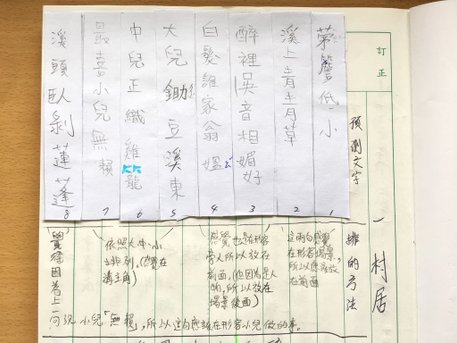 訂正
一 村居
預測文字
茅簷低小
1
溪上青青草
2
醉裡吳音相媚好
3
白髮誰家翁媼
4
大兒鋤豆溪東
5
中兒正織雞籠
6
最喜小兒無賴
7
溪頭臥剝蓮蓬
8
排的方法
這兩句感覺
在形容場景,
所以應該放
在前面
感覺也在形容
旁人所以放在
前面(也因為是人
物,所以放在
場景後面)
依照大、中、小
去排列。(感覺在
講主角)
覺得因為上一
句說小兒「無賴」,所以這句應該在形容小兒做的事。